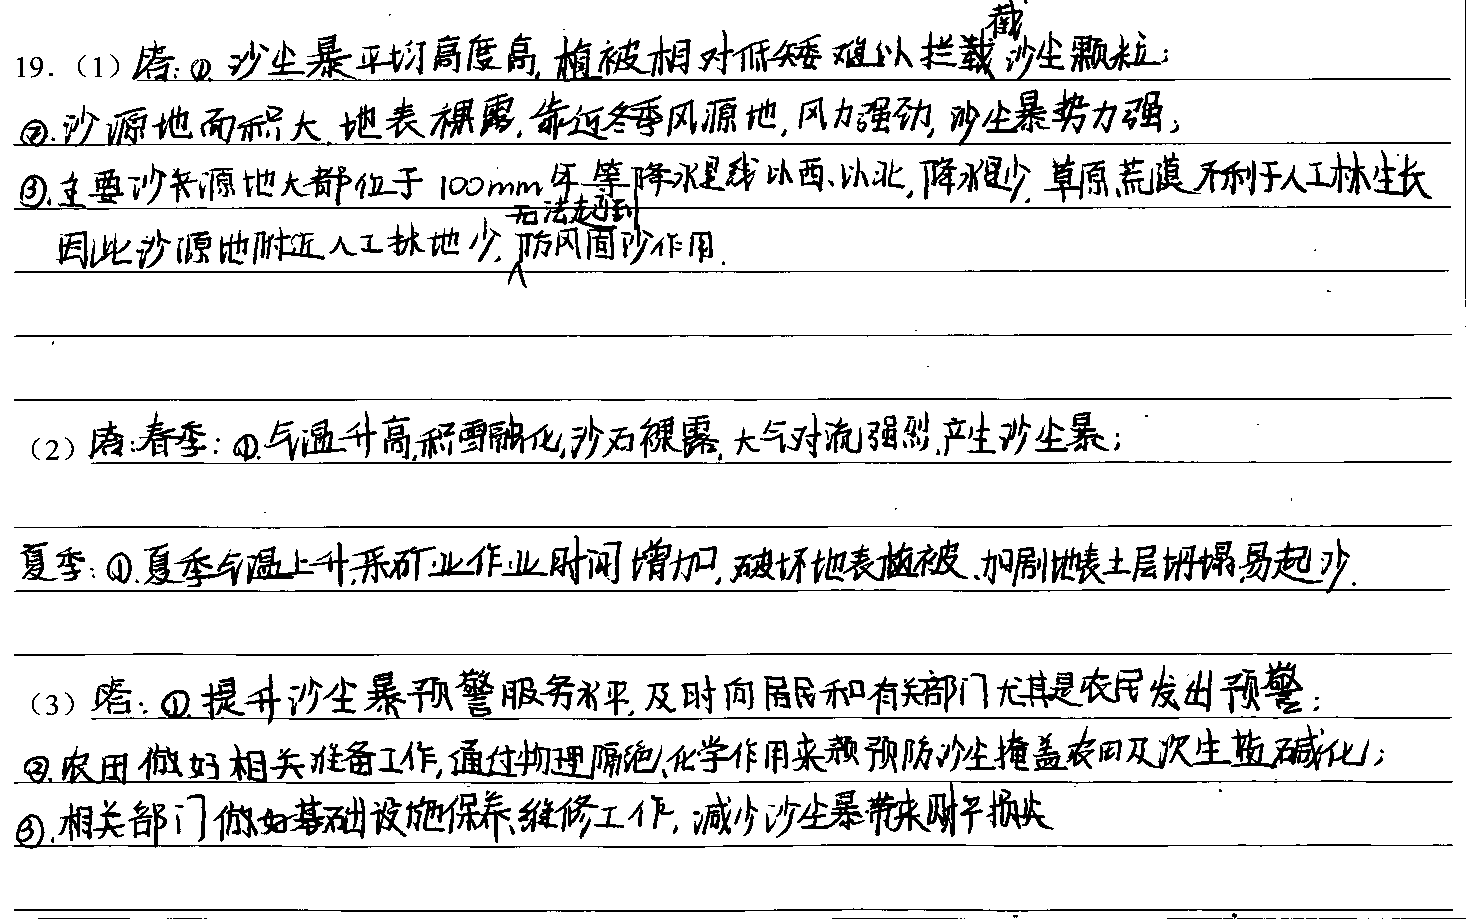 19.（1）答:①.沙尘暴平均高度高,植被相对低矮难以拦截沙尘颗粒;
②.沙源地面积大,地表裸露,靠近冬季风源地,风力强劲,沙尘暴势力强;
③.主要沙尘源地大都位于100mm年等降水量线以西、以北,降水量少,草原荒漠不利于人工林生长
因此沙源地附近人工林地少,无法起到防风固沙作用.
（2）答:春季:①.气温升高,积雪融化,沙石裸露,大气对流强烈,产生沙尘暴;
夏季:①.夏季气温上升,采矿业作业时间增加,破坏地表植被、加剧地表土层坍塌,易起沙.
（3）答:①.提升沙尘暴预警服务水平,及时向居民和有关部门尤其是农民发出预警;
②.农田做好相关准备工作,通过物理隔绝、化学作用来预防沙尘掩盖农田及次生盐碱化;
③.相关部门做好基础设施保养、维修工作,减少沙尘暴带来财产损失